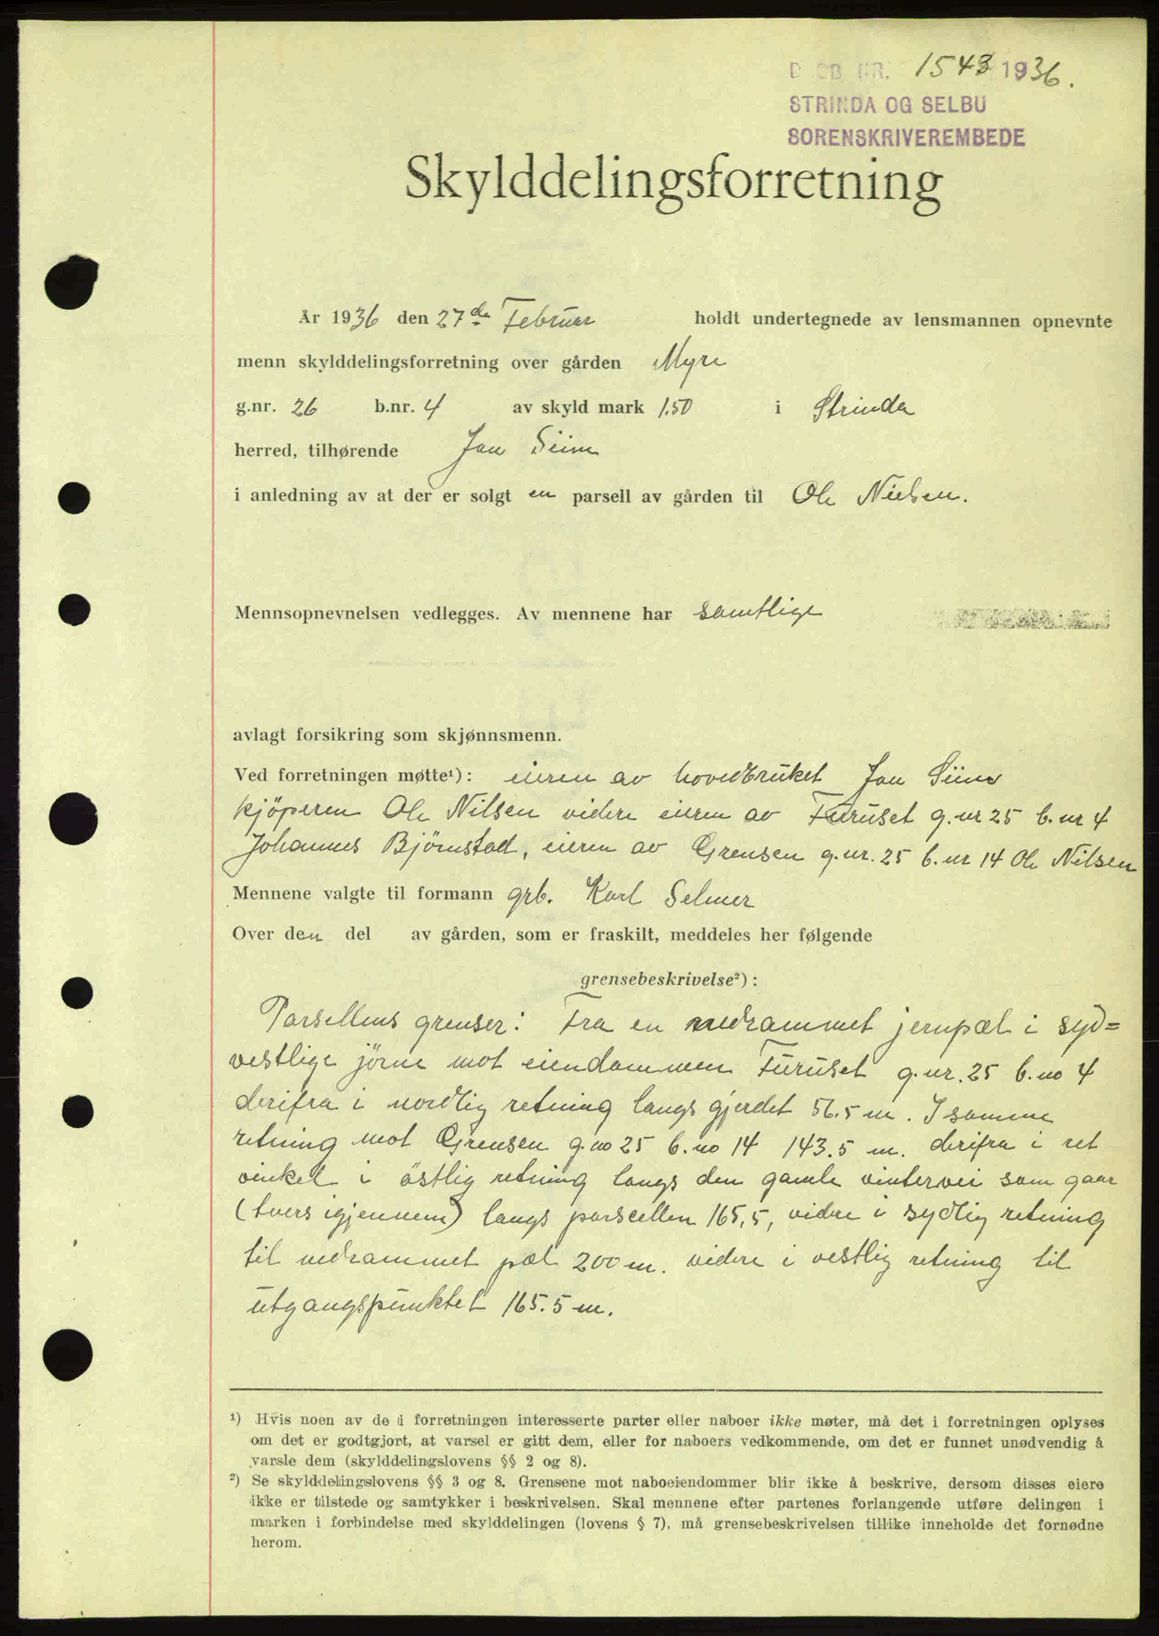 DAGB. NR. 1543 1936.
STRINDA OG SELBU
SORENSKRIVEREMBEDE
Skylddelingsforretning
År 1936 den 27de Februar holdt undertegnede av lensmannen opnevnte
menn skylddelingsforretning over gården Myre
g.nr. 26 b.nr. 4 av skyld mark 1.50 i Strinda
herred, tilhørende Jon Siim
i anledning av at der er solgt en parsell av gården til Ole Nielsen.
Mennsopnevnelsen vedlegges. Av mennene har samtlige
avlagt forsikring som skjønnsmenn.
Ved forretningen møtte¹): eieren av hovedbruket Jon Siim
kjöperen Ole Nilsen videre eieren av Furuset g.nr 25 b.nr 4
Johannes Björnstad, eieren av Grensen g.nr. 25 b.nr 14 Ole Nilsen
Mennene valgte til formann grb. Karl Selmer
Over den del av gården, som er fraskilt, meddeles her følgende
grensebeskrivelse²):
Parsellens grenser: Fra en nedrammet jernpæl i syd=
vestlige jörne mot eiendommen Furuset g.nr. 25 b.no 4
derifra i nordlig retning langs gjerdet 56.5 m. I samme
retning mot Grensen g.no 25 b.no 14 143.5 m. derifra i ret
vinkel i östlig retning langs den gamle vintervei som gaar
(tvers igjennem) langs parscellen 165,5, videre i sydlig retning
til nedrammet pæl 200 m. videre i vestlig retning til
utgangspunktet 165.5 m.
¹) Hvis noen av de i forretningen interesserte parter eller naboer ikke møter, må det i forretningen oplyses
om det er godtgjort, at varsel er gitt dem, eller for naboers vedkommende, om det er funnet unødvendig å
varsle dem (skylddelingslovens §§ 2 og 8).
²) Se skylddelingslovens §§ 3 og 8. Grensene mot naboeiendommer blir ikke å beskrive, dersom disses eiere
ikke er tilstede og samtykker i beskrivelsen. Skal mennene efter partenes forlangende utføre delingen i
marken i forbindelse med skylddelingen (lovens § 7), må grensebeskrivelsen tillike inneholde det fornødne
herom.